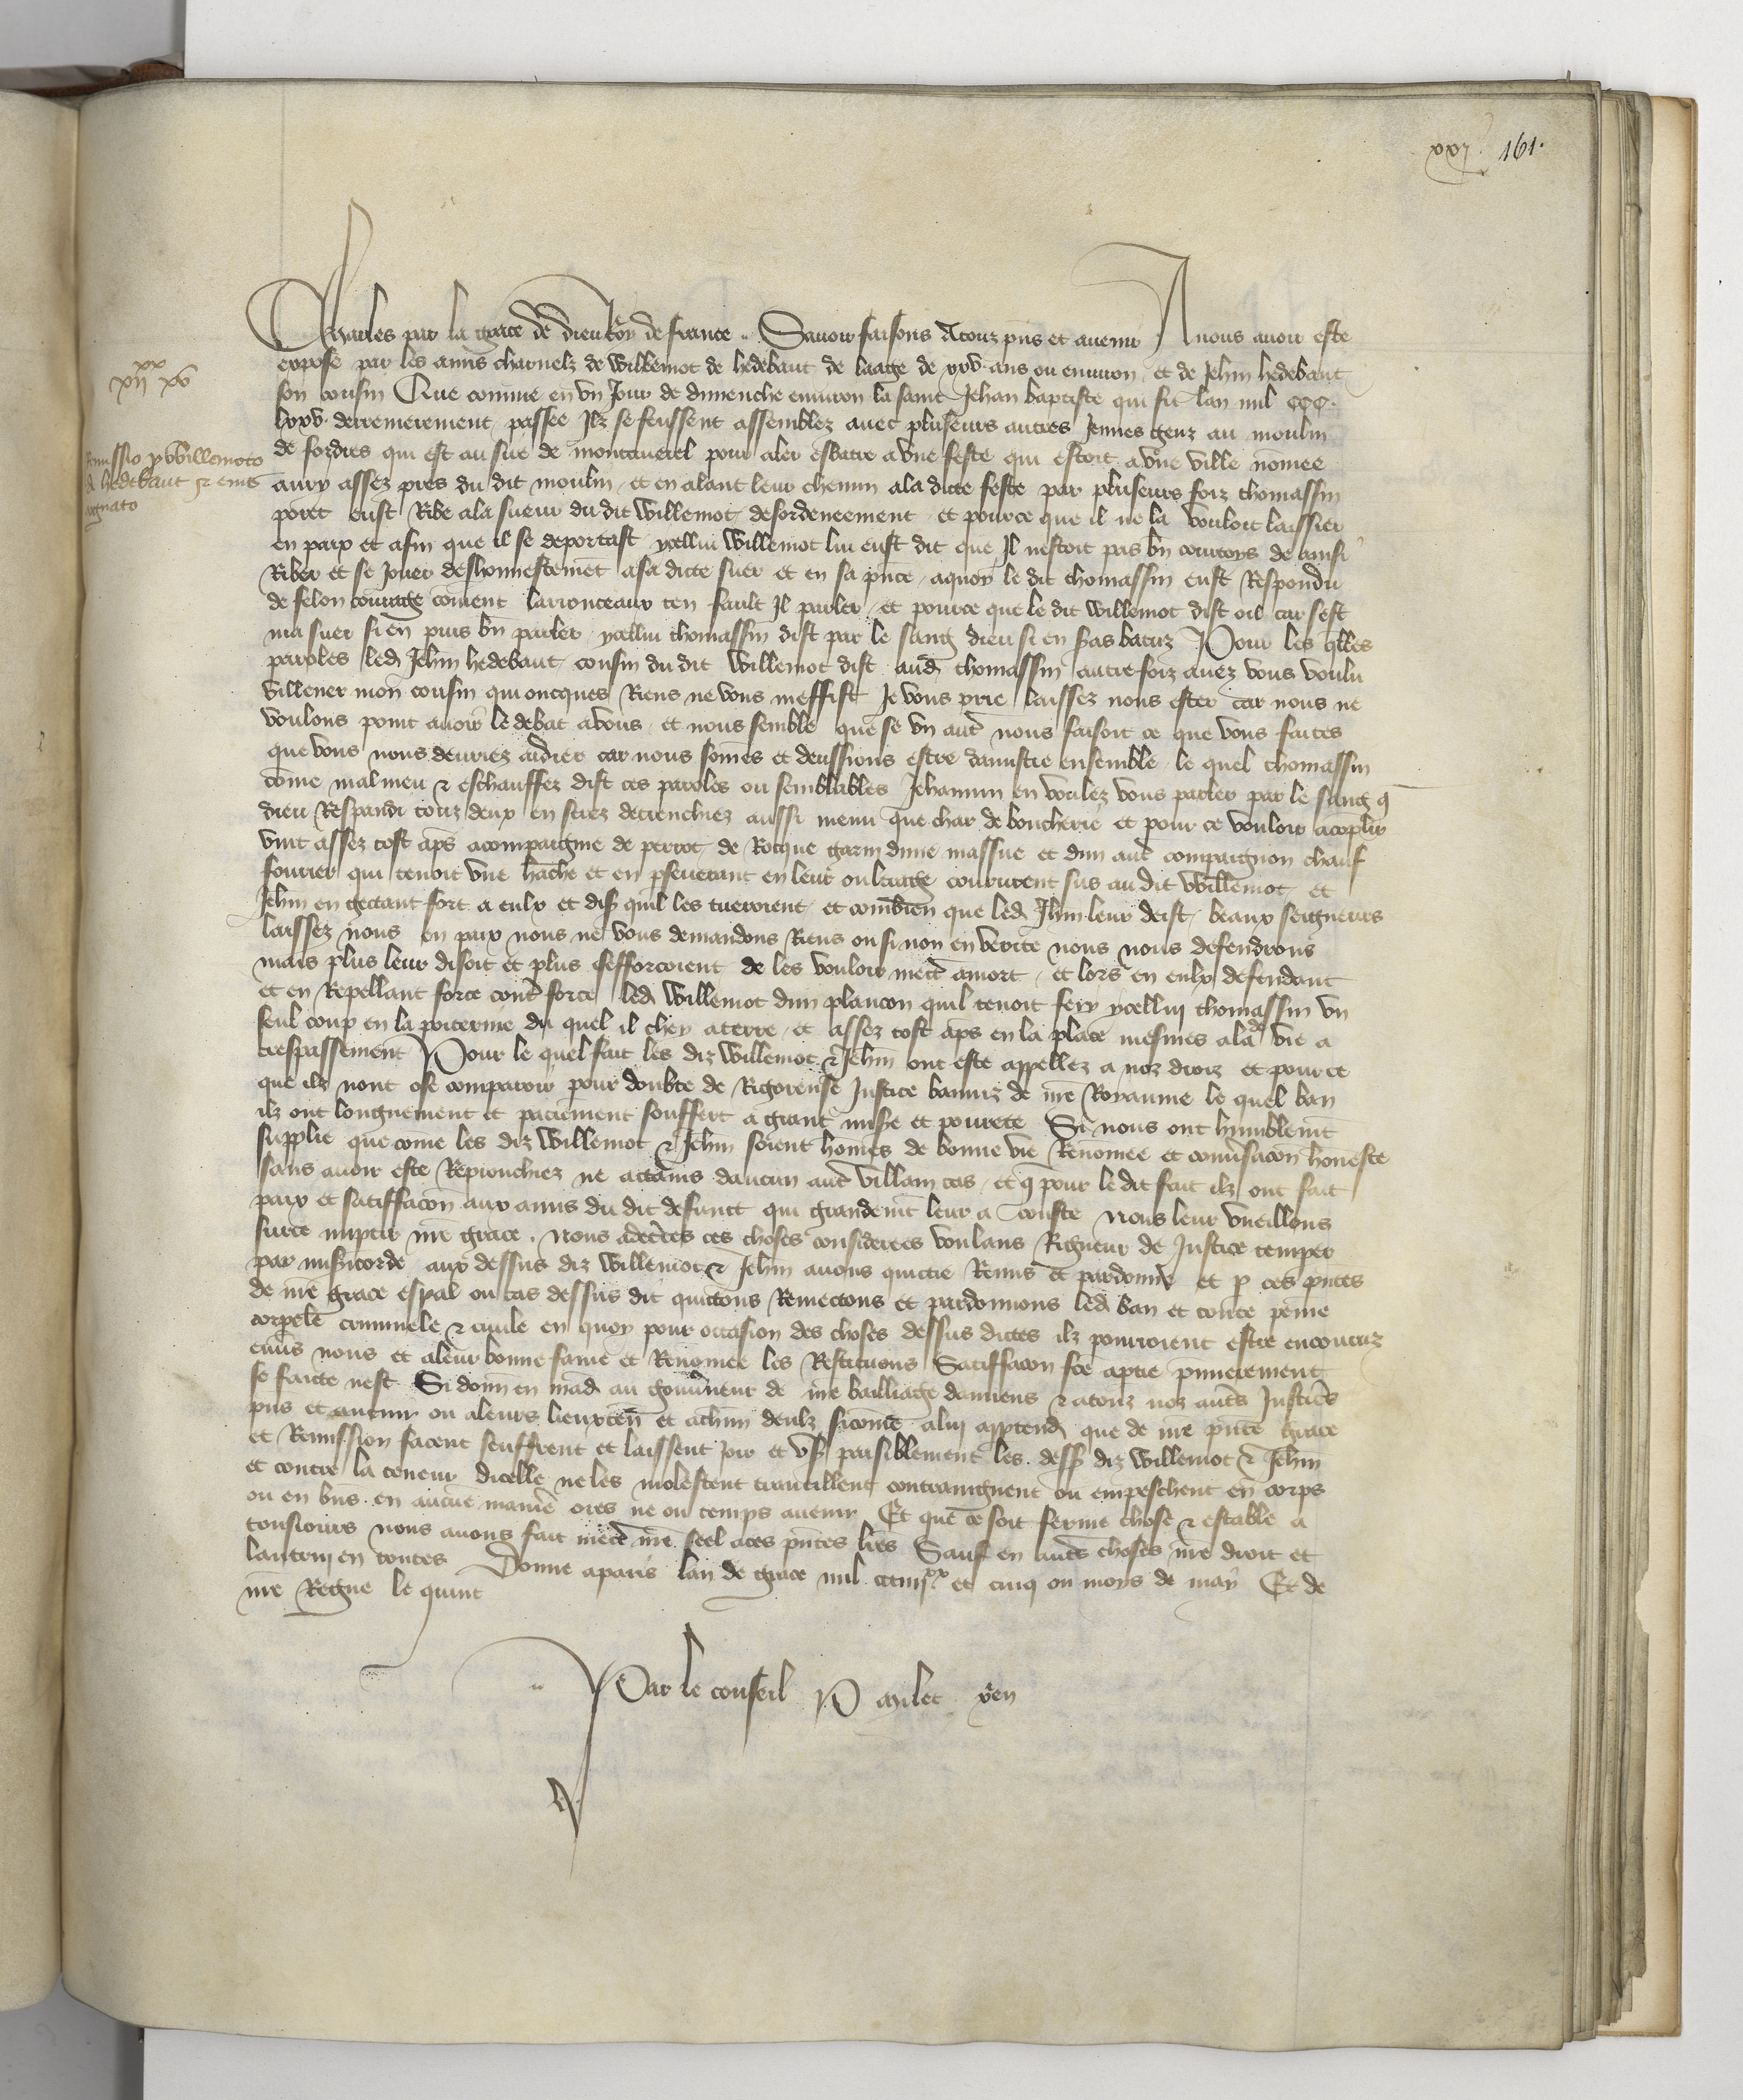 xxj 161.
Charles par la grace de dieu Roy de france. Savoir faisons A touz pñs et avenir A nous avoir este
expose par les amis charnelz de Willemot de hedebaut de laage de xxv. ans ou environ et de Jehñ hedebaut
son cousin Que comme en un Jour de dimenche environ la saint Jehan baptiste qui fu lan mil CCC.
lxxv. derrenierement passee Ilz se feussent assemblez avec pluseurs autres Jeunes genz au moulin
de fordres qui est au sire de montcaverel pour aler esbatre a une feste qui estoit a une ville nõmee
aury assez pres du dit moulin, et en alant leur chemin ala dicte feste par pluseurs foiz thomassin
poret eust Ribe ala sueur du dit Willemot desordeneement et pource que il ne la vouloit laissier
en paix et afin que il se deportast ycellui Willemot lui eust dit que Il nestoit pas bñ courtoys de ainsi
Riber et se Jouer deshonnestemẽt a sa dicte suer et en sa pñce, aquoy le dit thomassin eust Respondu
de felon courage cõment larronceaux ten fault Il parler, et pource que le dit Willemot dist oil car sest
ma suer si en puis bñ parler ycellui thomassin dist par le sang dieu si en s͂as batuz Pour les q̃lles
paroles led. Jehñ hedebaut cousin du dit Willemot dist aud. thomassin autrefoiz avez vous voulu
villener mon cousin qui oncques Riens ne vous meffist Je vous prie laissez nous ester car nous ne
voulons point avoir le debat a vous, et nous semble que se un aut̃ nous faisoit ce que vous faites
que vous nous deuriez aidier car nous sõmes et deussions estre damistie ensemble, le quel thomassin
cõme mal meu & eschauffez dist ces paroles ou semblables Jehannin en voulez vous parler par le sang q̃
dieu Respandi touz deux en serez detrenchiez aussi menu que char de boucherie et pour ce vouloir acõplir
vint assez tost ap̃s acompaigne de perrot de Rocque garni dune massue et dun aut̃ compaignon chauf
fourier qui tenoit une hache et en p̃severant en leur oultrage coururent sus au dit Willemot et
Jehñ en gectant fort a eulx et dis͂ quil les tueroient et combien que led. Jhñ leur deist, beaux seigneurs
laissez nous en paix nous ne vous demandons Riens ou si non en verite nous nous defendrons
mais plus leur disoit et plus sefforcoient de les vouloir mect̃ a mort, et lors en eulx defendant
et en Repellant force cont̃ force led. Willemot dun plancon quil tenoit fery ycelluy thomassin un
seul coup en la poiterine du quel il chey a terre, et assez tost ap̃s en la place mesmes ala de vie a
trespassement Pour le quel fait les diz Willemot & Jehñ ont este appellez a noz droiz et pource
que ilz nont ose comparoir pour doubte de Rigoreuse Justice banniz de nr̃e Royaume le quel ban
ilz ont longuement et paciẽment souffert a grant mis͂e et povrete Si nous ont humblem̃t
supplie que cõme les diz Willemot & Jehñ soient hõmes de bonne vie Renõmee et conv̾sacon honeste
sans avoir este Reprouchiez ne attains daucun aut̃ villain cas, et q̃ pour le dit fait ilz ont fait
paix et satiffacon aux amis du dit defunct qui grandem̃t leur a couste nous leur vueillons
surce imptir nr̃e grace. Nous adec̃tes ces choses considerees voulans Rigueur de Justice temper̃
par mis͂icorde aux dessus diz Willemot & Jehñ avons quictie Remis et pardonne et p̱ ces p̃ntes
de nr̃e grace esp̃al ou cas dessus dit quictons Remectons et pardonnons led. ban et toute peine
corpele criminele & civile en quoy pour occasion des choses dessus dictes ilz pourroient estre encouruz
env̾s nous et a leur bonne fame et Renõmee les Restituons Satiffacon fc̃e a ptie p̃mierement
se faicte nest Si donñ en mãd. au gouv̾neur de nr̃e bailliage damiens & a touz noz aut̃s Justic̃rs
pñs et avenir ou a leurs lieuxteñ et a chũn deulx sicõme a luy app̱tend. que de nr̃e p̃nte grace
et Remission facent seuffrent et laissent Joir et us͂ paisiblement les dess͂ diz Willemot & Jehñ
et contre la teneur dicelle ne les molestent traveillent contraignent ou empeschent en corps
ou en biñs en aucũe manie͂ ores ne ou temps avenir Et que ce soit ferme chose & estable a
tousiours nous avons fait mect̃ nr̃e seel a ces p̃ntes lr̃es Sauf en aut̃s choses nr̃e droit et
lautruy en toutes Donne a paris lan de grace mil ccciiij.xx et cinq ou moys de may Et de
nr̃e Regne le quint
Par le conseil P milet
xx
xij xv
Remissio p̱ Willemoto
de hedebaut & eius
cognato